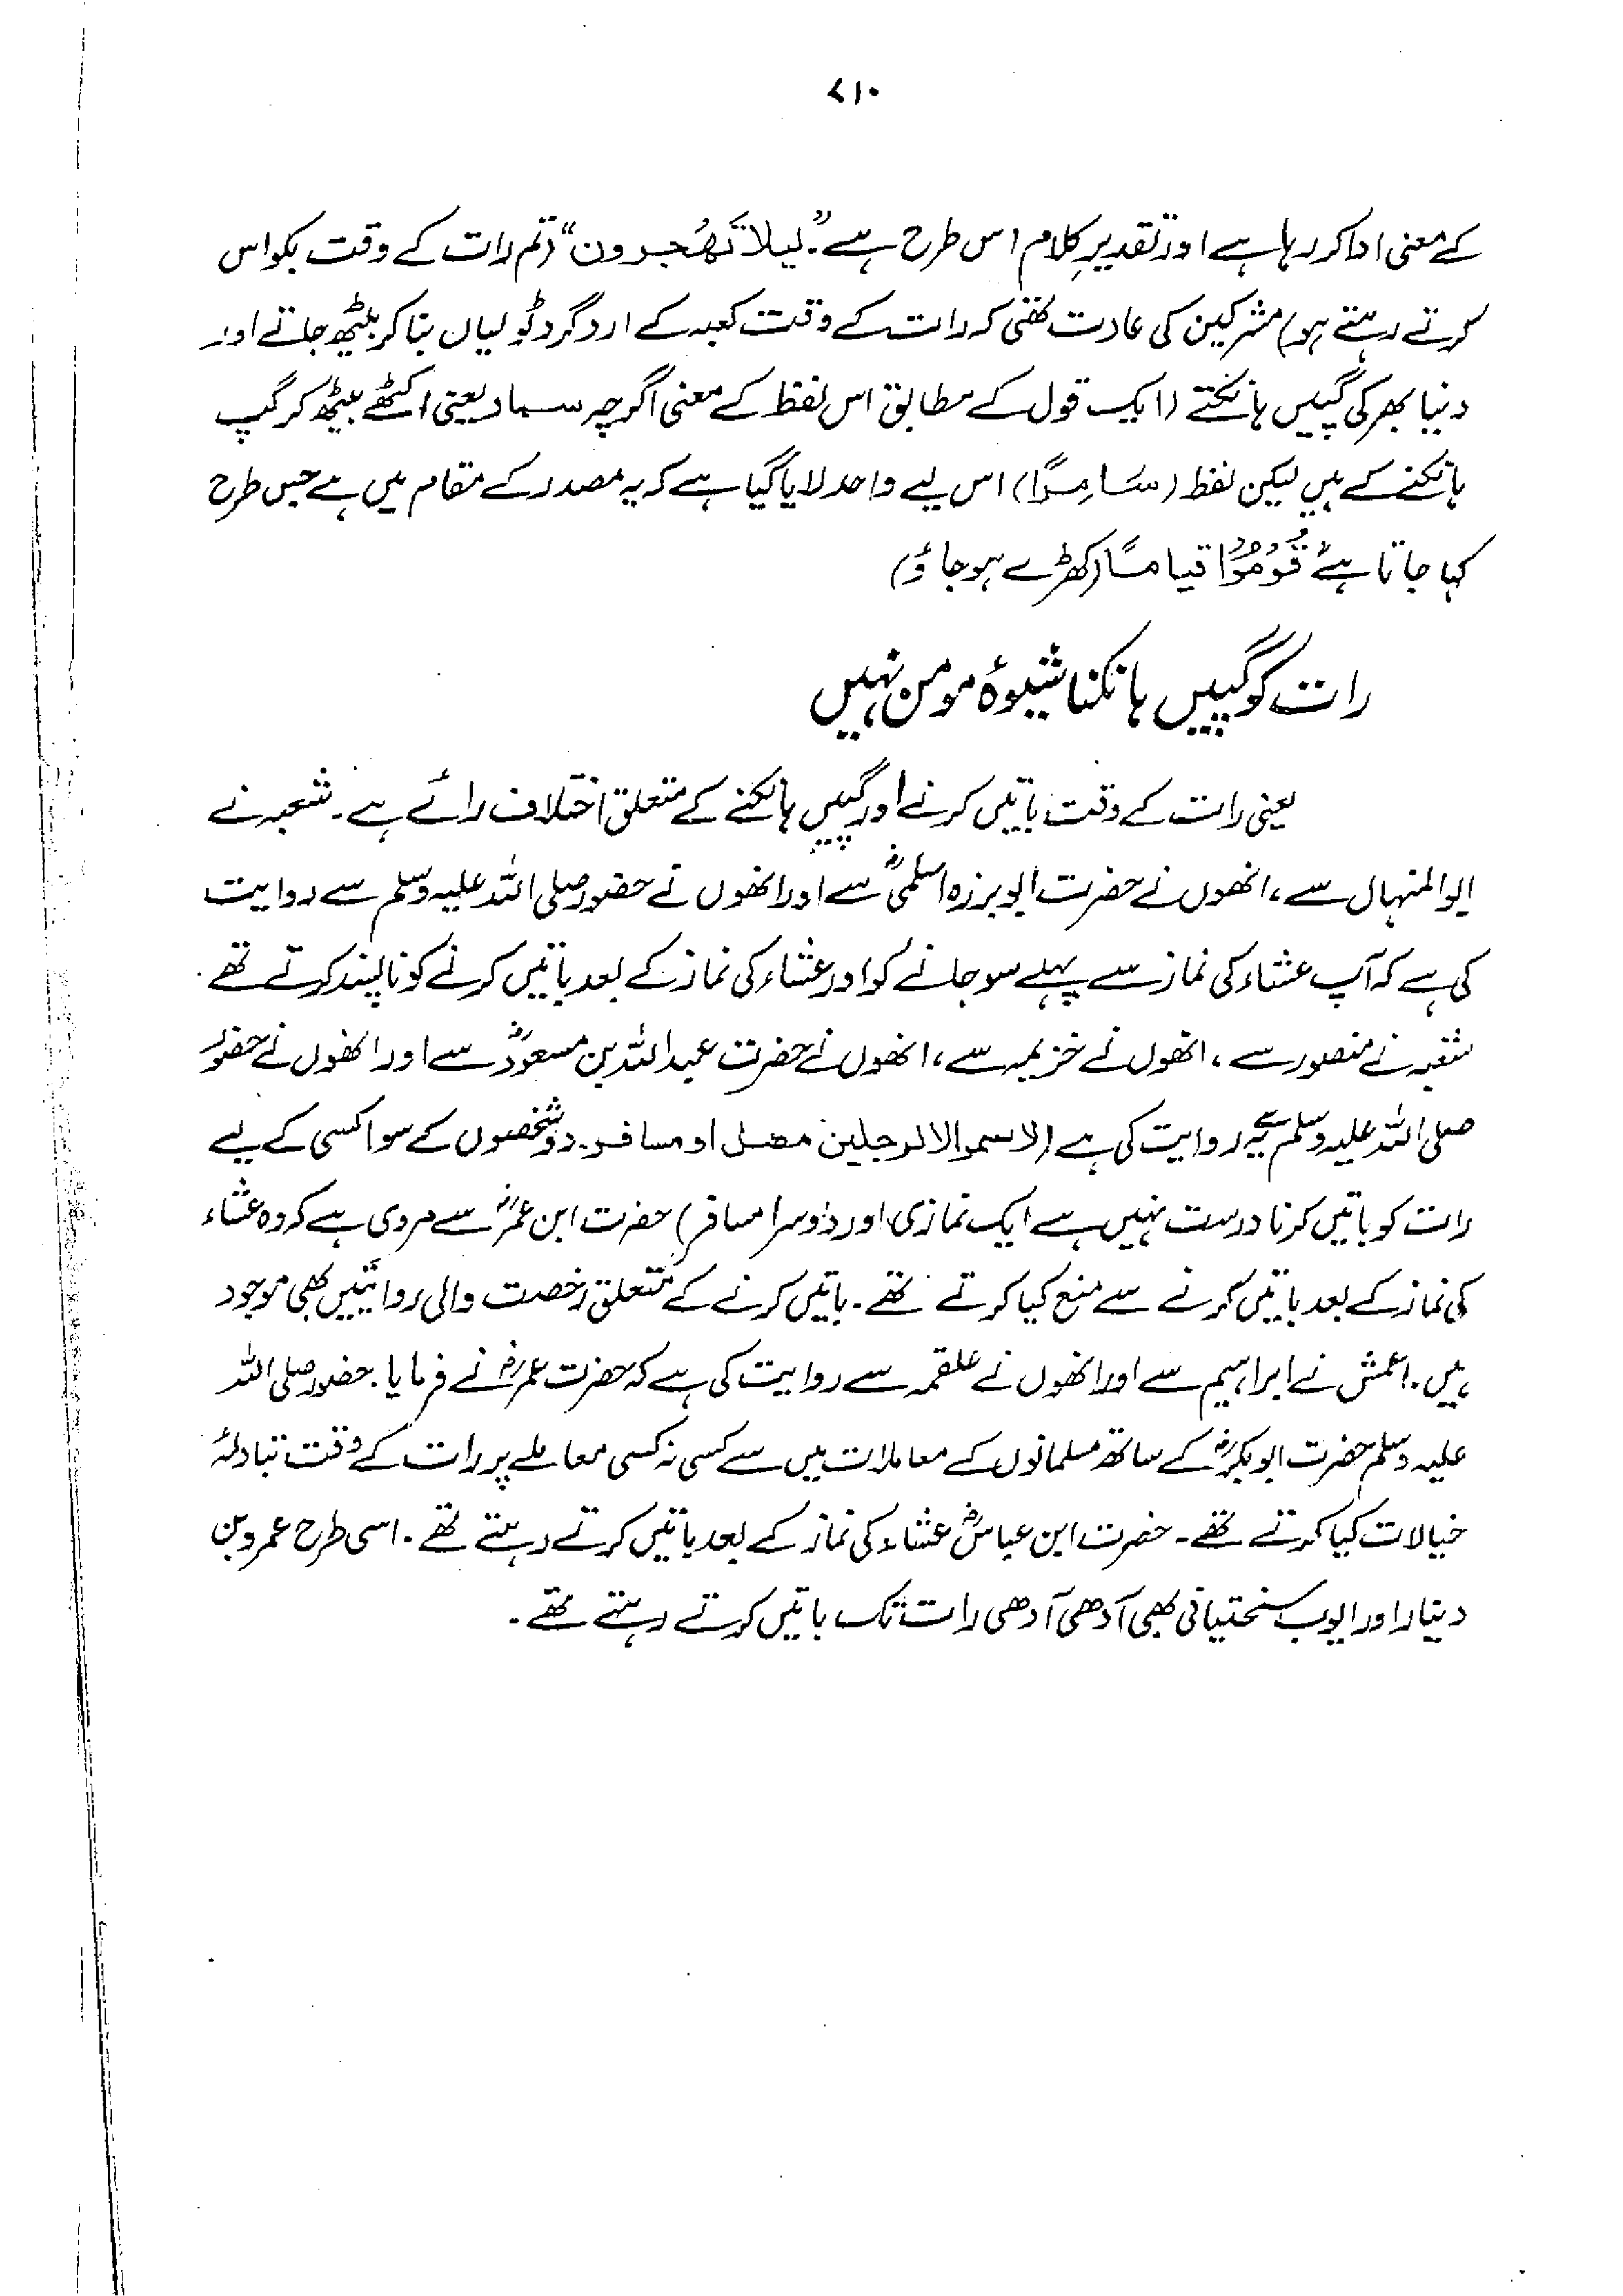 ۷۱۰
کے معنی ادا کر رہا ہے اور تقدیرِ کلام اس طرح ہے "لیلا تَھْجُرون" (تم رات کے وقت بکواس
کرتے رہتے ہو) مشرکین کی عادت تھی کہ رات کے وقت کعبہ کے ارد گرد ٹولیاں بنا کر بیٹھ جاتے اور
دنیا بھر کی گپیں ہانکتے (ایک قول کے مطابق اس لفظ کے معنی اگرچہ سمار یعنی اکٹھے بیٹھ کر گپ
ہانکنے کے ہیں لیکن لفظ (سَامِرًا) اس لیے واحد لایا گیا ہے کہ یہ مصدر کے مقام میں ہے جس طرح
کہا جاتا ہے "قُوْمُوْا قیامًا (کھڑے ہو جاؤ)
رات کو گپیں ہانکنا شیوۂ مومن نہیں
یعنی رات کے وقت باتیں کرنے اور گپیں ہانکنے کے متعلق اختلاف رائے ہے۔ شعبہ نے
ابوالمنہال سے، انھوں نے حضرت ابوبرزہ اسلمیؓ سے اور انھوں نے حضور صلی اللہ علیہ وسلم سے روایت
کی ہے کہ آپ عشاء کی نماز سے پہلے سو جانے کو اور عشاء کی نماز کے بعد باتیں کرنے کو ناپسند کرتے تھے۔
شعبہ نے منصور سے، انھوں نے خزیمہ سے، انھوں نے حضرت عبداللہ بن مسعودؓ سے اور انھوں نے حضور
صلی اللہ علیہ وسلم سے یہ روایت کی ہے (لا سمر الا لرجلین مصل او مسافر۔ دو شخصوں کے سوا کسی کے لیے
رات کو باتیں کرنا درست نہیں ہے ایک نمازی اور دوسرا مسافر) حضرت ابن عمرؓ سے مروی ہے کہ وہ عشاء
کی نماز کے بعد باتیں کرنے سے منع کیا کرتے تھے۔ باتیں کرنے کے متعلق رخصت والی روایتیں بھی موجود
ہیں۔ اعمش نے ابراہیم سے اور انھوں نے علقمہ سے روایت کی ہے کہ حضرت عمرؓ نے فرمایا۔ حضور صلی اللہ
علیہ وسلم حضرت ابوبکرؓ کے ساتھ مسلمانوں کے معاملات میں سے کسی نہ کسی معاملے پر رات کے وقت تبادلۂ
خیالات کیا کرتے تھے۔ حضرت ابن عباسؓ عشاء کی نماز کے بعد باتیں کرتے رہتے تھے۔ اسی طرح عمرو بن
دینار اور ایوب سختیانی بھی آدھی آدھی رات تک باتیں کرتے رہتے تھے۔